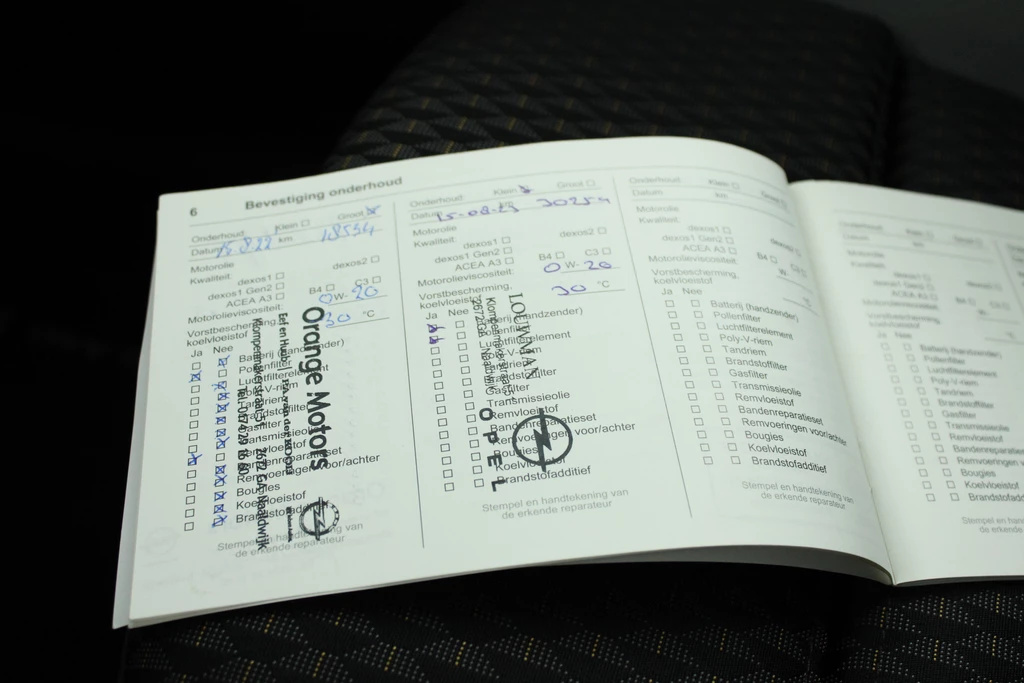 6 Bevestiging onderhoud
Onderhoud: Klein Groot
Datum 15.8.22 km 18554
Motorolie
Kwaliteit: dexos1 dexos2
dexos1 Gen2
ACEA A3 B4 C3
Motorolieviscositeit: 0 W- 20
Vorstbescherming,
koelvloeistof 30 °C
Ja Nee
Batterij (handzender)
Pollenfilter
Luchtfilterelement
Poly-V-riem
Remvoeringen voor/achter
Bougies
Koelvloeistof
Brandstofadditief
Stempel en handtekening van
de erkende reparateur
Orange Motors
2672 GA Naaldwijk
Onderhoud: Klein Groot
Datum 15-08-23 30254
Motorolie
Kwaliteit: dexos1 dexos2
dexos1 Gen2
ACEA A3 B4 C3
Motorolieviscositeit: 0 W- 20
Vorstbescherming,
koelvloeistof 30 °C
Ja Nee
Batterij (handzender)
Pollenfilter
Poly-V-riem
Tandriem
Brandstoffilter
Gasfilter
Transmissieolie
Remvloeistof
Bandenreparatieset
Remvoeringen voor/achter
Bougies
Koelvloeistof
Brandstofadditief
Stempel en handtekening van
de erkende reparateur
LOUWMAN
OPEL
Onderhoud: Klein Groot
Datum km
Motorolie
Kwaliteit: dexos1 dexos2
dexos1 Gen2
ACEA A3 B4 C3
Motorolieviscositeit: W-
Vorstbescherming,
koelvloeistof °C
Ja Nee
Batterij (handzender)
Pollenfilter
Luchtfilterelement
Poly-V-riem
Tandriem
Brandstoffilter
Gasfilter
Transmissieolie
Remvloeistof
Bandenreparatieset
Remvoeringen voor/achter
Bougies
Koelvloeistof
Brandstofadditief
Stempel en handtekening van
de erkende reparateur
Onderhoud: Klein Groot
Datum km
Motorolie
Kwaliteit: dexos1
dexos1 Gen2
ACEA A3 B4 C3
Motorolieviscositeit:
Vorstbescherming,
koelvloeistof °C
Ja Nee
Batterij (handzender)
Pollenfilter
Luchtfilterelement
Poly-V-riem
Tandriem
Brandstoffilter
Gasfilter
Transmissieolie
Remvloeistof
Bandenreparatieset
Remvoeringen voor/achter
Bougies
Koelvloeistof
Stempel en
de erkende